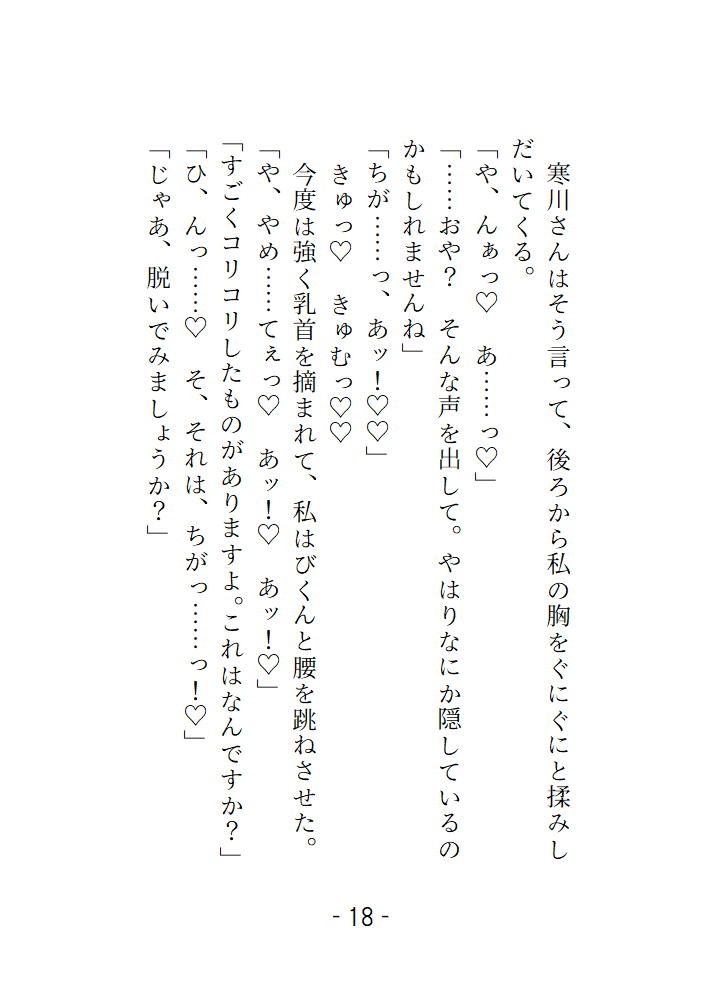 寒川さんはそう言って、後ろから私の胸をぐにぐにと揉みし
だいてくる。
「や、んぁっ♡　あ……っ♡」
「……おや？　そんな声を出して。やはりなにか隠しているの
かもしれませんね」
「ちが……っ、あッ！♡♡」
きゅっ♡　きゅむっ♡♡
今度は強く乳首を摘まれて、私はびくんと腰を跳ねさせた。
「や、やめ……てぇっ♡　あッ！♡　あッ！♡」
「すごくコリコリしたものがありますよ。これはなんですか？」
「ひ、んっ……♡　そ、それは、ちがっ……っ！♡」
「じゃあ、脱いでみましょうか？」
- 18 -